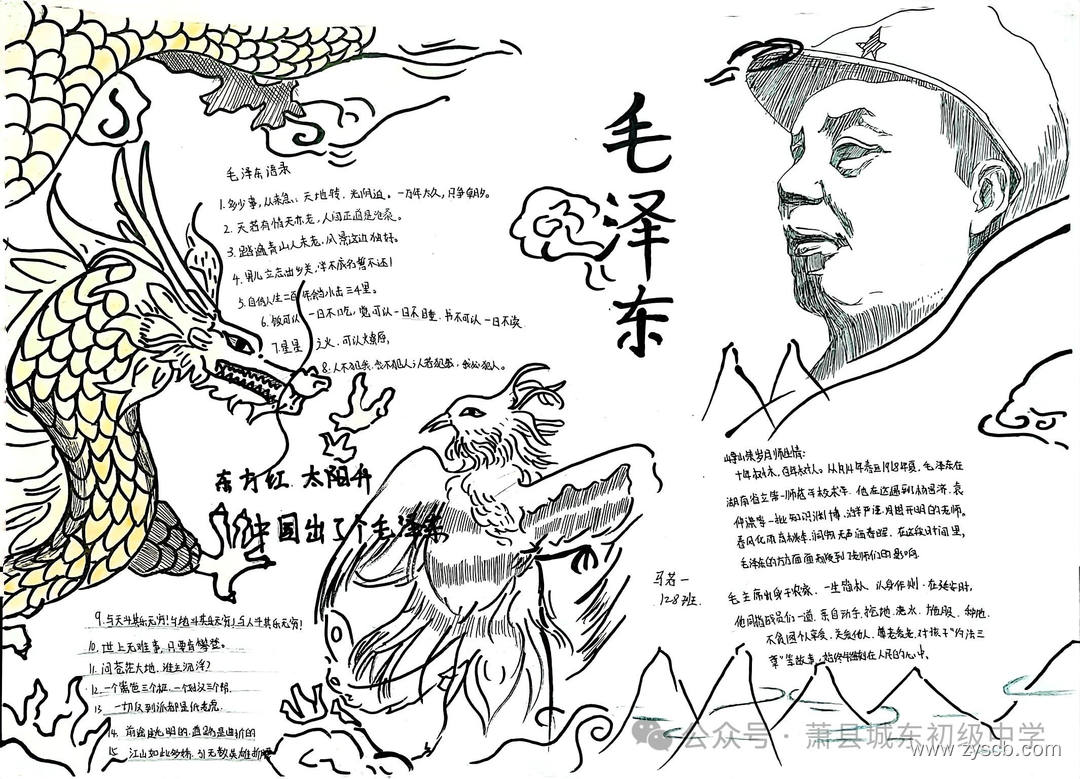 毛泽东
毛泽东语录
1.多少事,从来急;天地转,光阴迫。一万年太久,只争朝夕。
2.天若有情天亦老,人间正道是沧桑。
3.踏遍青山人未老,风景这边独好。
4.男儿立志出乡关,学不成名誓不还!
5.自信人生二百年,会当水击三千里。
6.饭可以一日不吃,觉可以一日不睡,书不可以一日不读
7.星星之火,可以燎原,
8.人不犯我,我不犯人;人若犯我,我必犯人。
东方红 太阳升
中国出了个毛泽东
9.与天斗其乐无穷!与地斗其乐无穷!与人斗其乐无穷!
10.世上无难事,只要肯攀登。
11.问苍茫大地,谁主沉浮?
12.一个篱笆三个桩,一个好汉三个帮.
13.一切反动派都是纸老虎.
14.前途是光明的,道路是曲折的
15.江山如此多娇,引无数英雄折腰
马若一
128班
岁月师生情:
十年树木,百年树人。从1914年春至1918年夏,毛泽东在
湖南省立第一师范学校求学.他在这遇到杨昌济、袁
仲谦等一批知识渊博、治学严谨、思想开明的老师。
春风化雨育桃李,润物无声洒春晖。在这段时间里,
毛泽东的方方面面都受到了老师们的影响
毛主席出身于农家,一生简朴,以身作则.在延安时,
他同指战员们一道,亲自动手,挖地、浇水、施肥、种地.
不贪图个人享受、关爱他人、尊老爱老,对孩子"约法三
章"等故事,始终铭刻在人民的心中.
公众号·萧县城东初级中学
www.zyscb.com